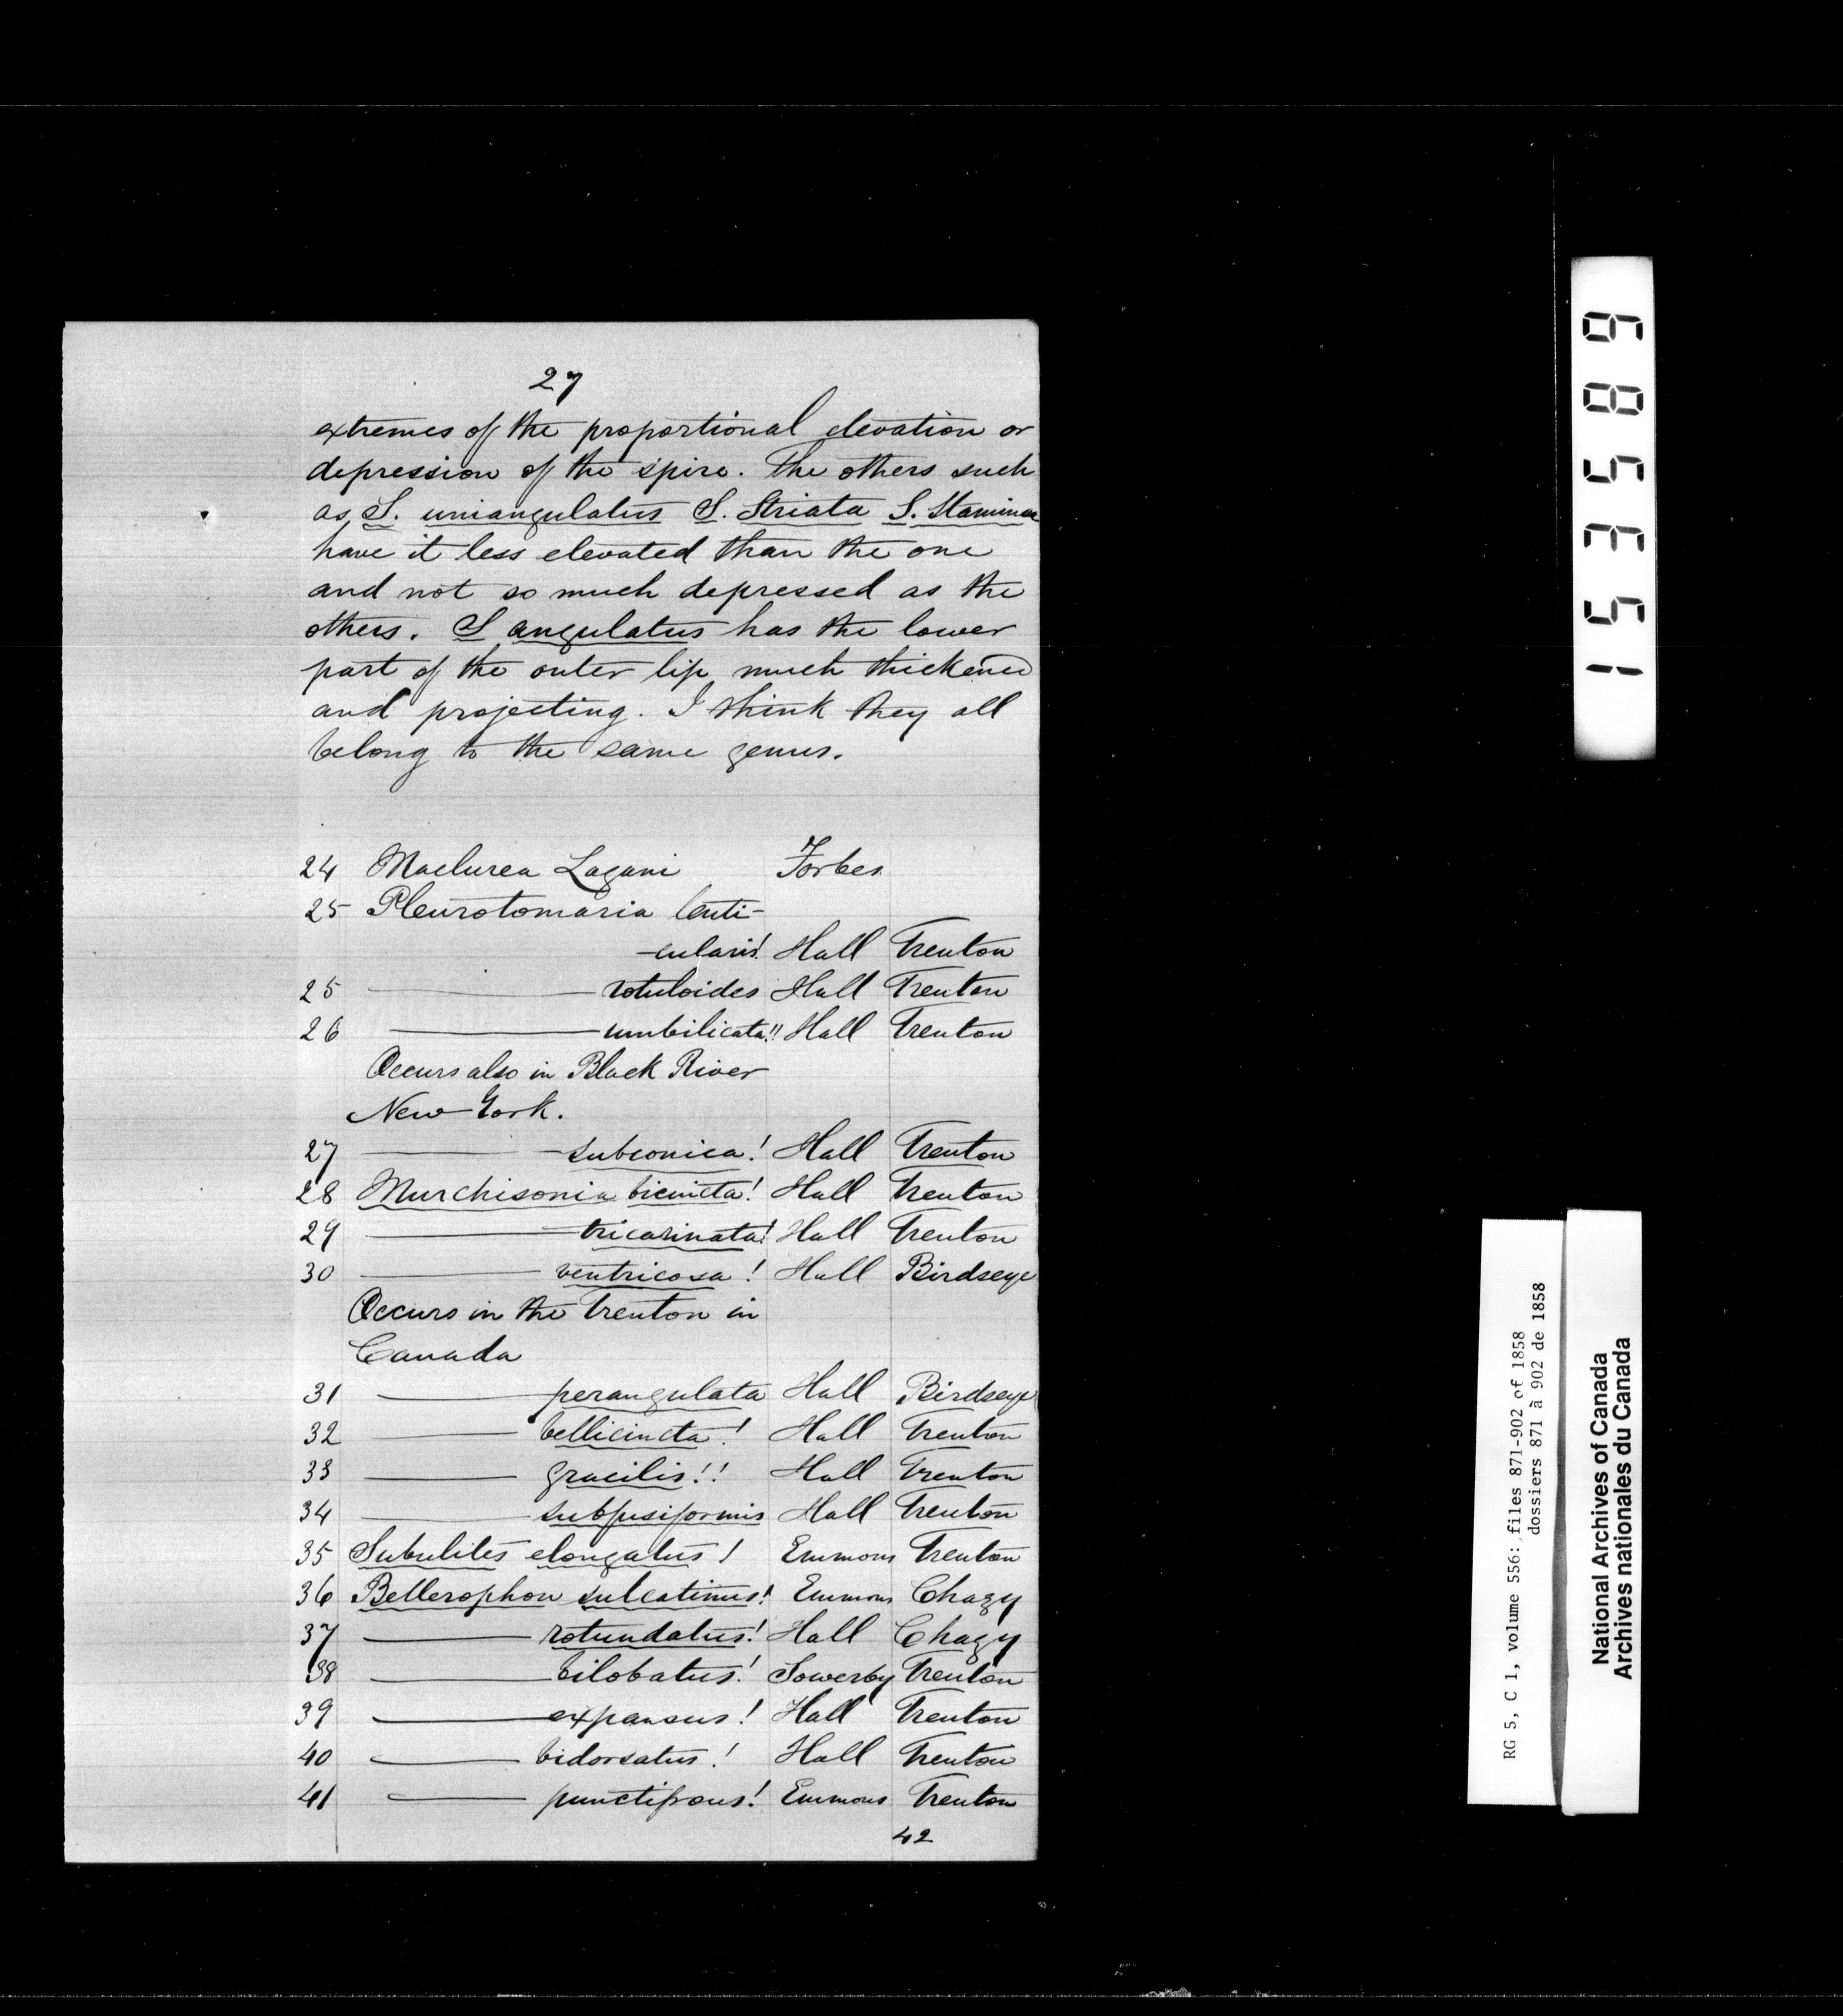 27
extremes of the proportional elevation or
depression of the spire. The others such
as S. uniangulatus S. Striata S. Staminea
have it less elevated than the one
and not so much depressed as the
others. S angulatus has the lower
part of the outer lip much thickened
and projecting. I think they all
belong to the same genus.
24 Maclurea Logani Forbes
25 Pleurotomaria lenti-
-cularis! Hall Trenton
25 ——— rotuloides Hall Trenton
26 ——— umbilicata!! Hall Trenton
Occurs also in Black River
New York.
27 ——— subconica! Hall Trenton
28 Murchisonia bicincta! Hall Trenton
29 ——— tricarinata! Hall Trenton
30 ——— ventricosa! Hall Birdseye
Occurs in the Trenton in
Canada
31 ——— perangulata Hall Birdseye
32 ——— bellicincta! Hall Trenton
33 ——— gracilis!! Hall Trenton
34 ——— subfusiformis Hall Trenton
35 Subulites elongatus! Emmons Trenton
36 Bellerophon sulcatinus! Emmons Chazy
37 ——— rotundatus! Hall Chazy
38 ——— bilobatus! Sowerby Trenton
39 ——— expansus! Hall Trenton
40 ——— bidorsatus! Hall Trenton
41 ——— punctifrons! Emmons Trenton
42
153589
RG 5, C 1, volume 556: files 871-902 of 1858
dossiers 871 à 902 de 1858
National Archives of Canada
Archives nationales du Canada